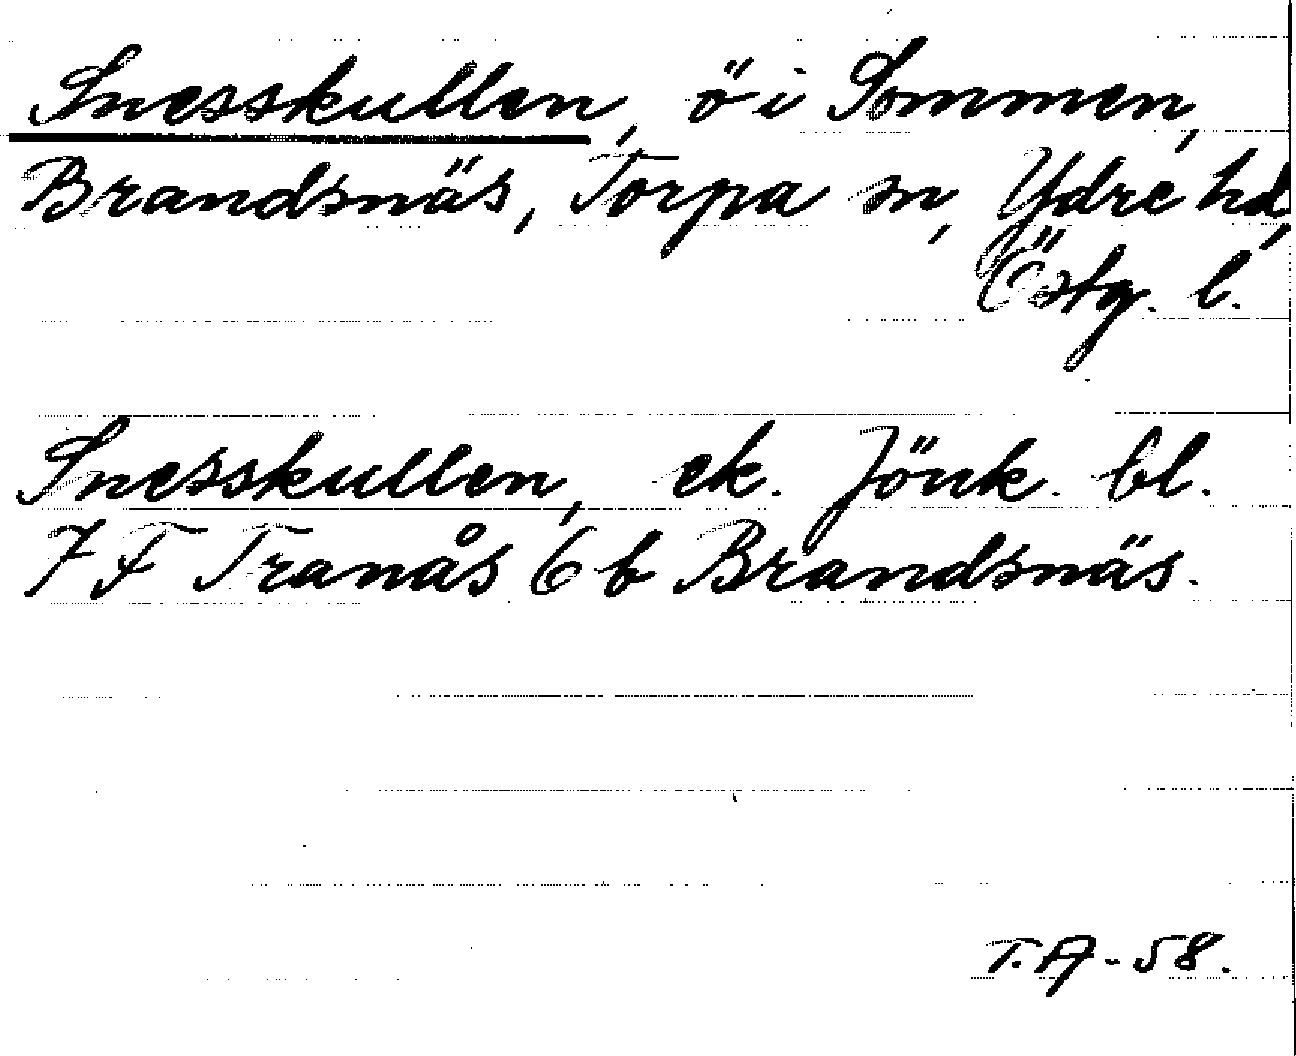 Snesskullen, ö i Sommen,
Brandsnäs, Torpa sn, Ydre hd,
Östg. l.
Snesskullen, ek. Jönk. bl.
7 F Tranås 6 b Brandsnäs.
T. A-58.